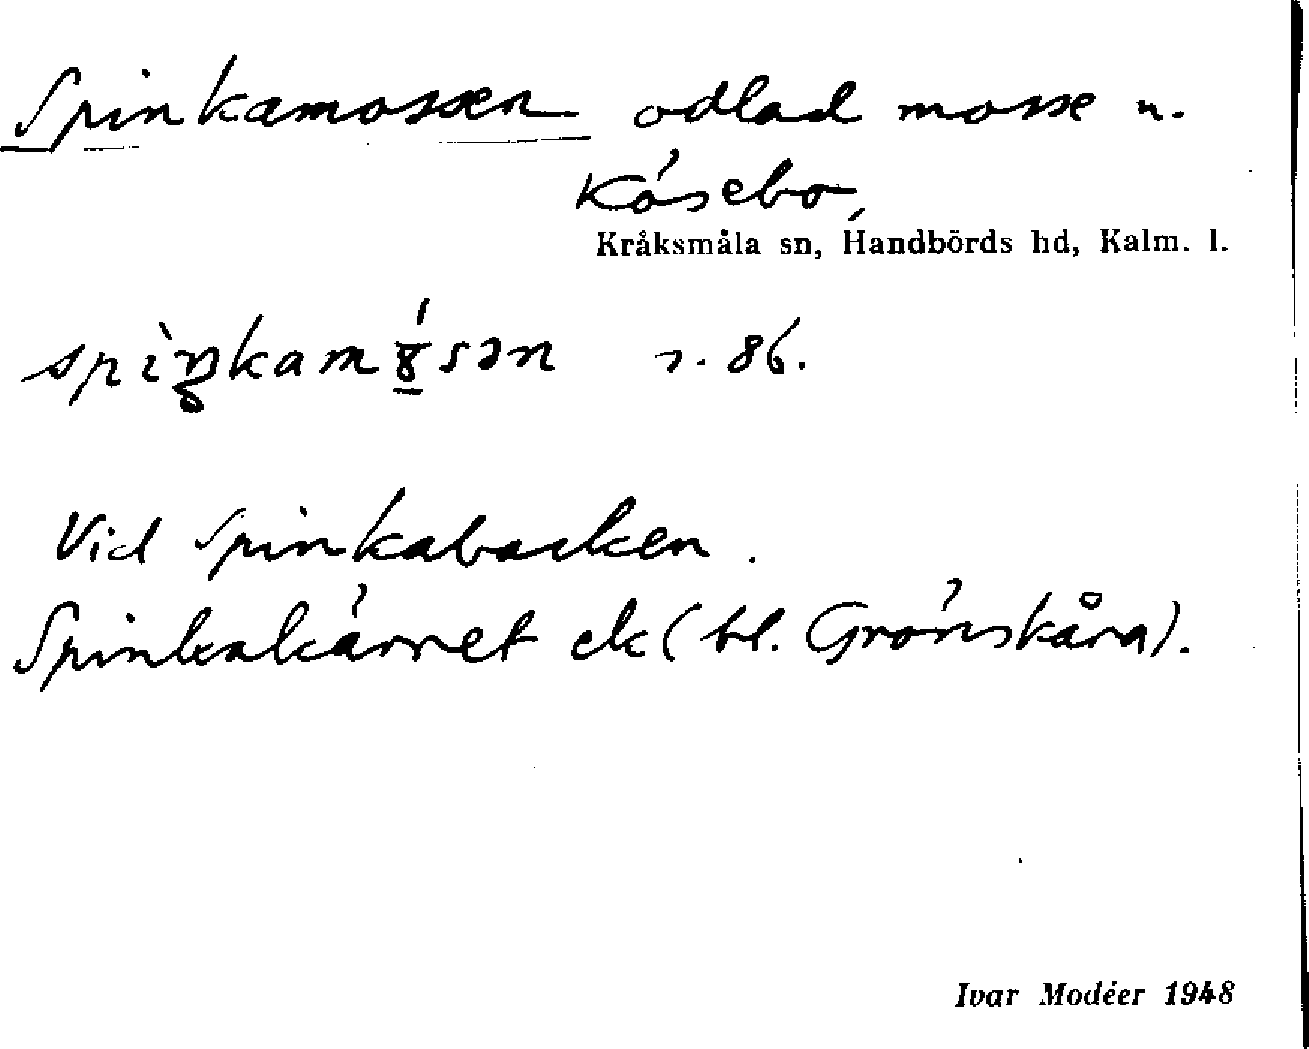 Spinkamossen odlad mosse n.
Kösebo,
Kråksmåla sn, Handbörds hd, Kalm. l.
spìŋkamɤ́sən s. 86.
Vid Spinkabacken.
Spinkakärret ek (bl. Grönskåra).
Ivar Modéer 1948